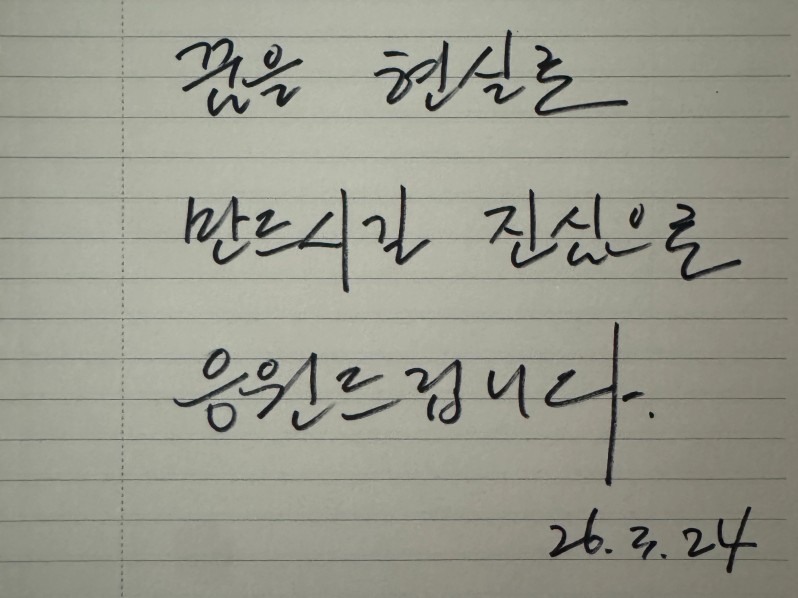 꿈을 현실로
만드시길 진심으로
응원드립니다.
26. 3. 24